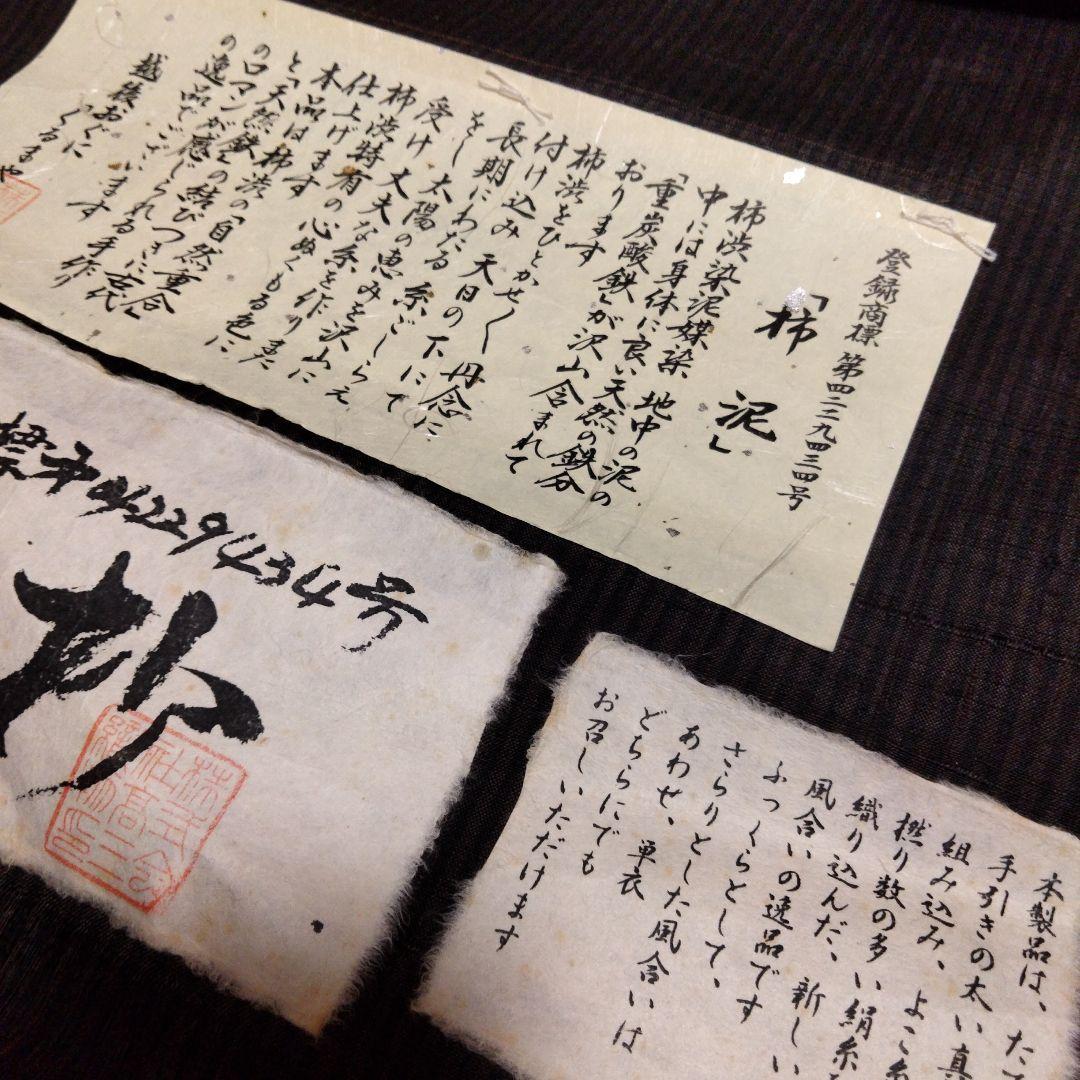 登録商標 第四二二九四三四号
「柿 泥」
柿渋染泥媒染 地中の泥の
中には身体に良い天然の鉄分
「重炭酸鉄」が沢山含まれて
おります
柿渋をひとかせく 丹念に
付け込み 天日の下にて
長期にわたる糸ごしらえ
をし 太陽の恵みを沢山に
受け 丈夫な糸を作りまた
柿渋特有の心ぬくもる色に
仕上げます
本品は「自然重合」
と「天然柿渋の
の鉄との結びつきに古代
ロマンが感じられる手作り
の逸品でございます
越後おぐに
くるまや
標第4229434号
株式会
社高三
本製品は、たて
手引きの太い真
組み込み、よこ糸
撚り数の多い絹糸
織り込んだ、新しい
風合いの逸品です
ふっくらとして、
さらりとした風合いは
あわせ、単衣
どちらにでも
お召しいただけます